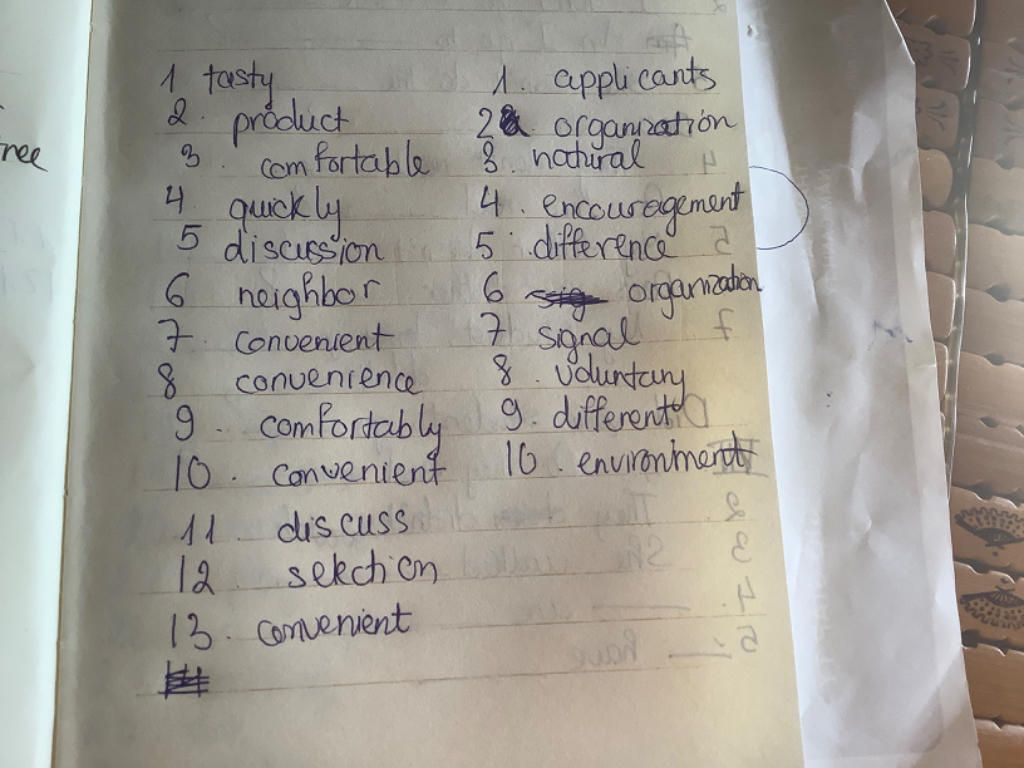 ree
1 tasty
2. product
3. comfortable
4 quickly
5 discussion
6 neighbor
7. convenient
8 convenience
9. comfortably
10. convenient
11 discuss
12 selection
13. convenient
1. applicants
2 organization
3. natural
4. encouragement
5 difference
6 organization
7 signal
8. voluntary
9. different
10. environment